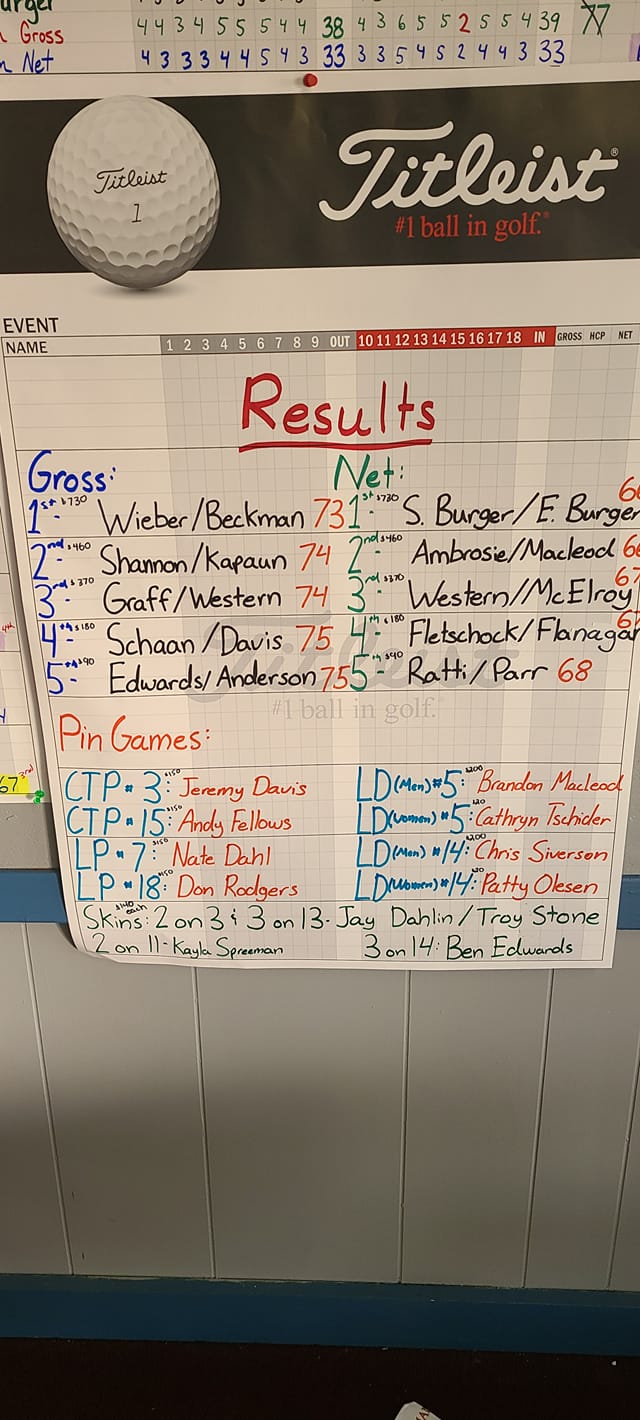 urger
Gross 4 4 3 4 5 5 5 4 4 38 4 3 6 5 5 2 5 5 4 39 77
Net 4 3 3 3 4 4 5 4 3 33 3 3 5 4 5 2 4 4 3 33
Titleist
1
Titleist®
#1 ball in golf.®
EVENT
NAME 1 2 3 4 5 6 7 8 9 OUT 10 11 12 13 14 15 16 17 18 IN GROSS HCP NET
Results
Gross: Net:
1st $730 - Wieber/Beckman 73 1st $730 - S. Burger/E. Burger 66
2nd $460 - Shannon/Kapaun 74 2nd $460 - Ambrosie/Macleod 66
3rd $370 - Graff/Western 74 3rd $370 - Western/McElroy 67
4th $180 - Schaan/Davis 75 4th $180 - Fletschock/Flanagan
5th $90 - Edwards/Anderson 75 5th $90 - Ratti/Parr 68
Titleist
#1 ball in golf.®
Pin Games:
CTP # 3: $150 Jeremy Davis LD (Men) #5: $200 Brandon Macleod
CTP # 15: $150 Andy Fellows LD (Women) #5: $120 Cathryn Tschider
LP # 7: $150 Nate Dahl LD (Men) #14: $200 Chris Siverson
LP # 18: $150 Don Rodgers LD (Women) #14: $120 Patty Olesen
$140 each
Skins: 2 on 3 & 3 on 13 - Jay Dahlin / Troy Stone
2 on 11 - Kayla Spreeman 3 on 14: Ben Edwards
67 3rd